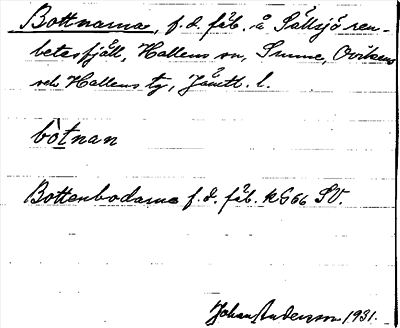 Bottnarna, f. d. fäb. å Sällsjö ren-
betesfjäll, Hallens sn, Sunne, Ovikens
och Hallens tg, Jämtl. l.
bòtnan
Bottenbodarna f. d. fäb. k G66 SV.
Johan Anderson 1931.